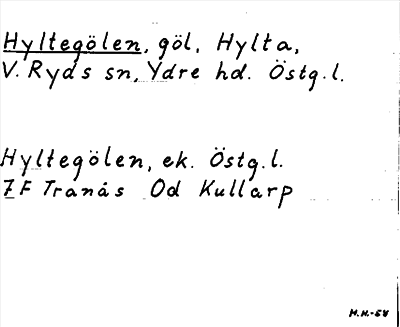 Hyltegölen, göl, Hylta,
V. Ryds sn, Ydre hd. Östg.l.
Hyltegölen, ek. Östg.l.
7F Tranås Od Kullarp